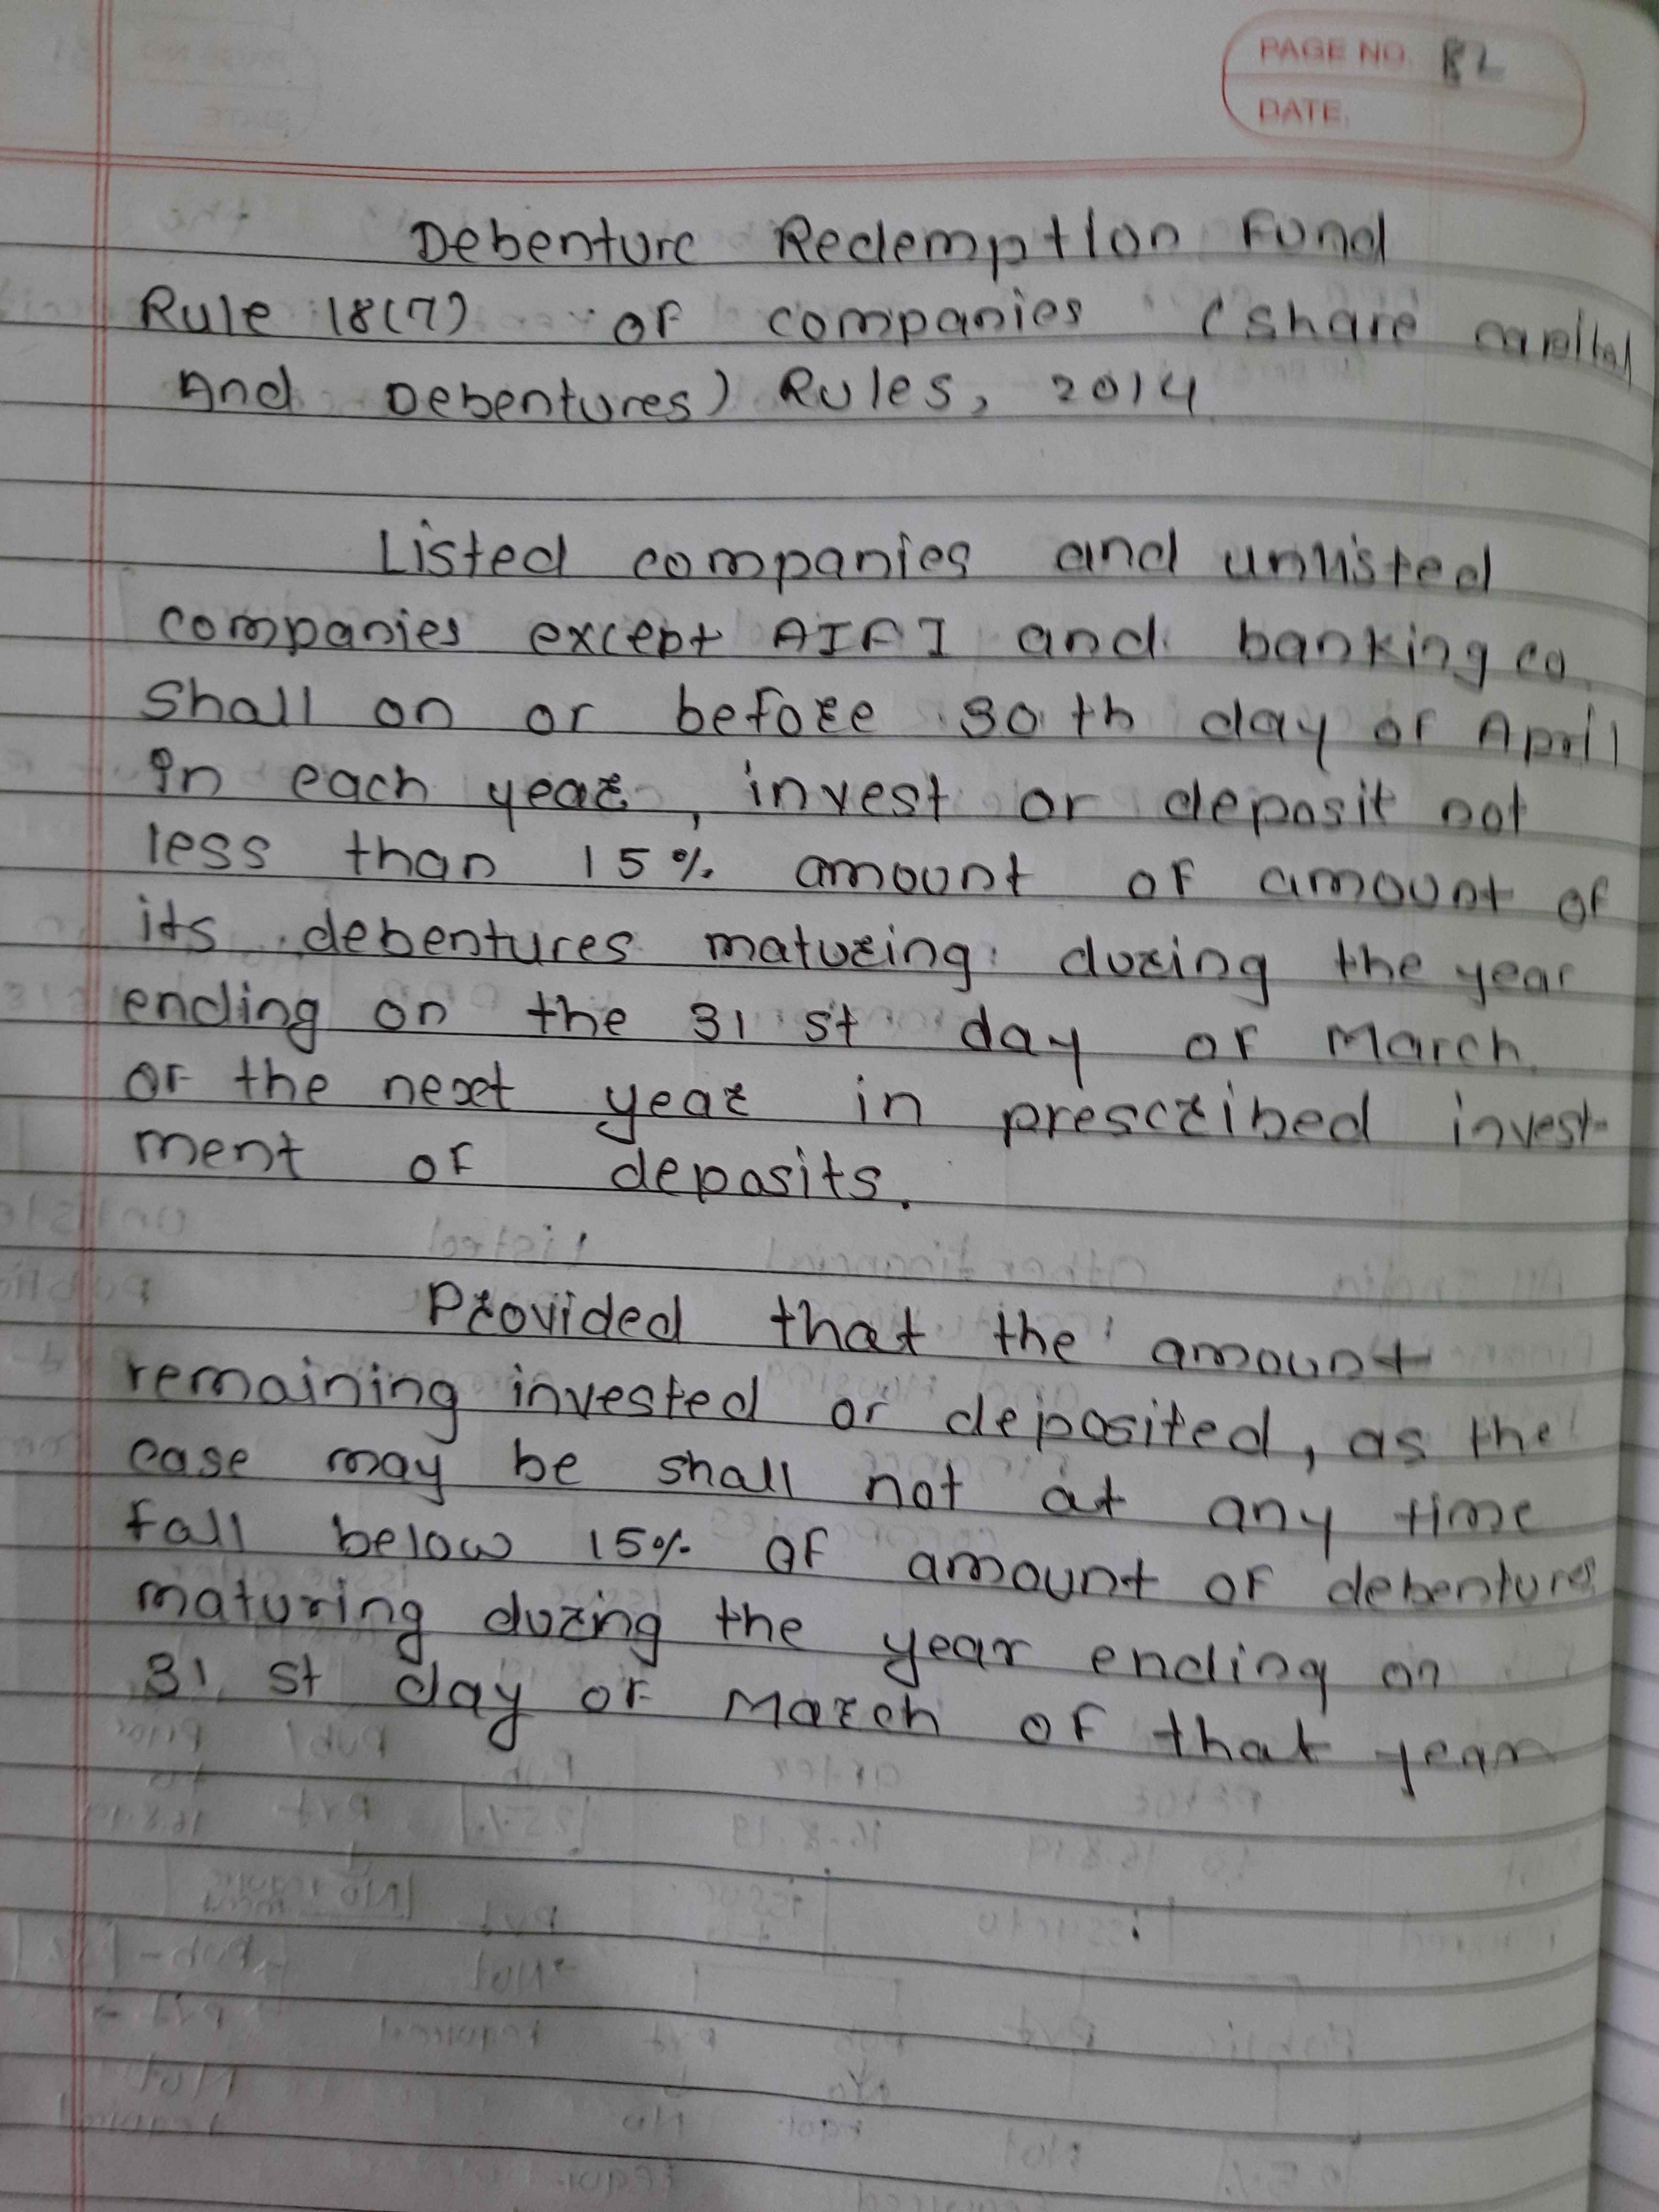 PAGE NO. 82
DATE.
Debenture Redemption Fund
Rule 18(7) of companies (share capital
And Debentures) Rules, 2014
Listed companies and unlisted
companies except AIFI and banking co.
shall on or before 30 th day of April
in each year, invest or deposit not
less than 15% amount of amount of
its debentures maturing during the year
ending on the 31 st day of March
of the next year in prescribed invest-
ment of deposits.
Provided that the amount
remaining invested or deposited, as the
case may be shall not at any time
fall below 15% of amount of debentures
maturing during the year ending on
31 st day of March of that year